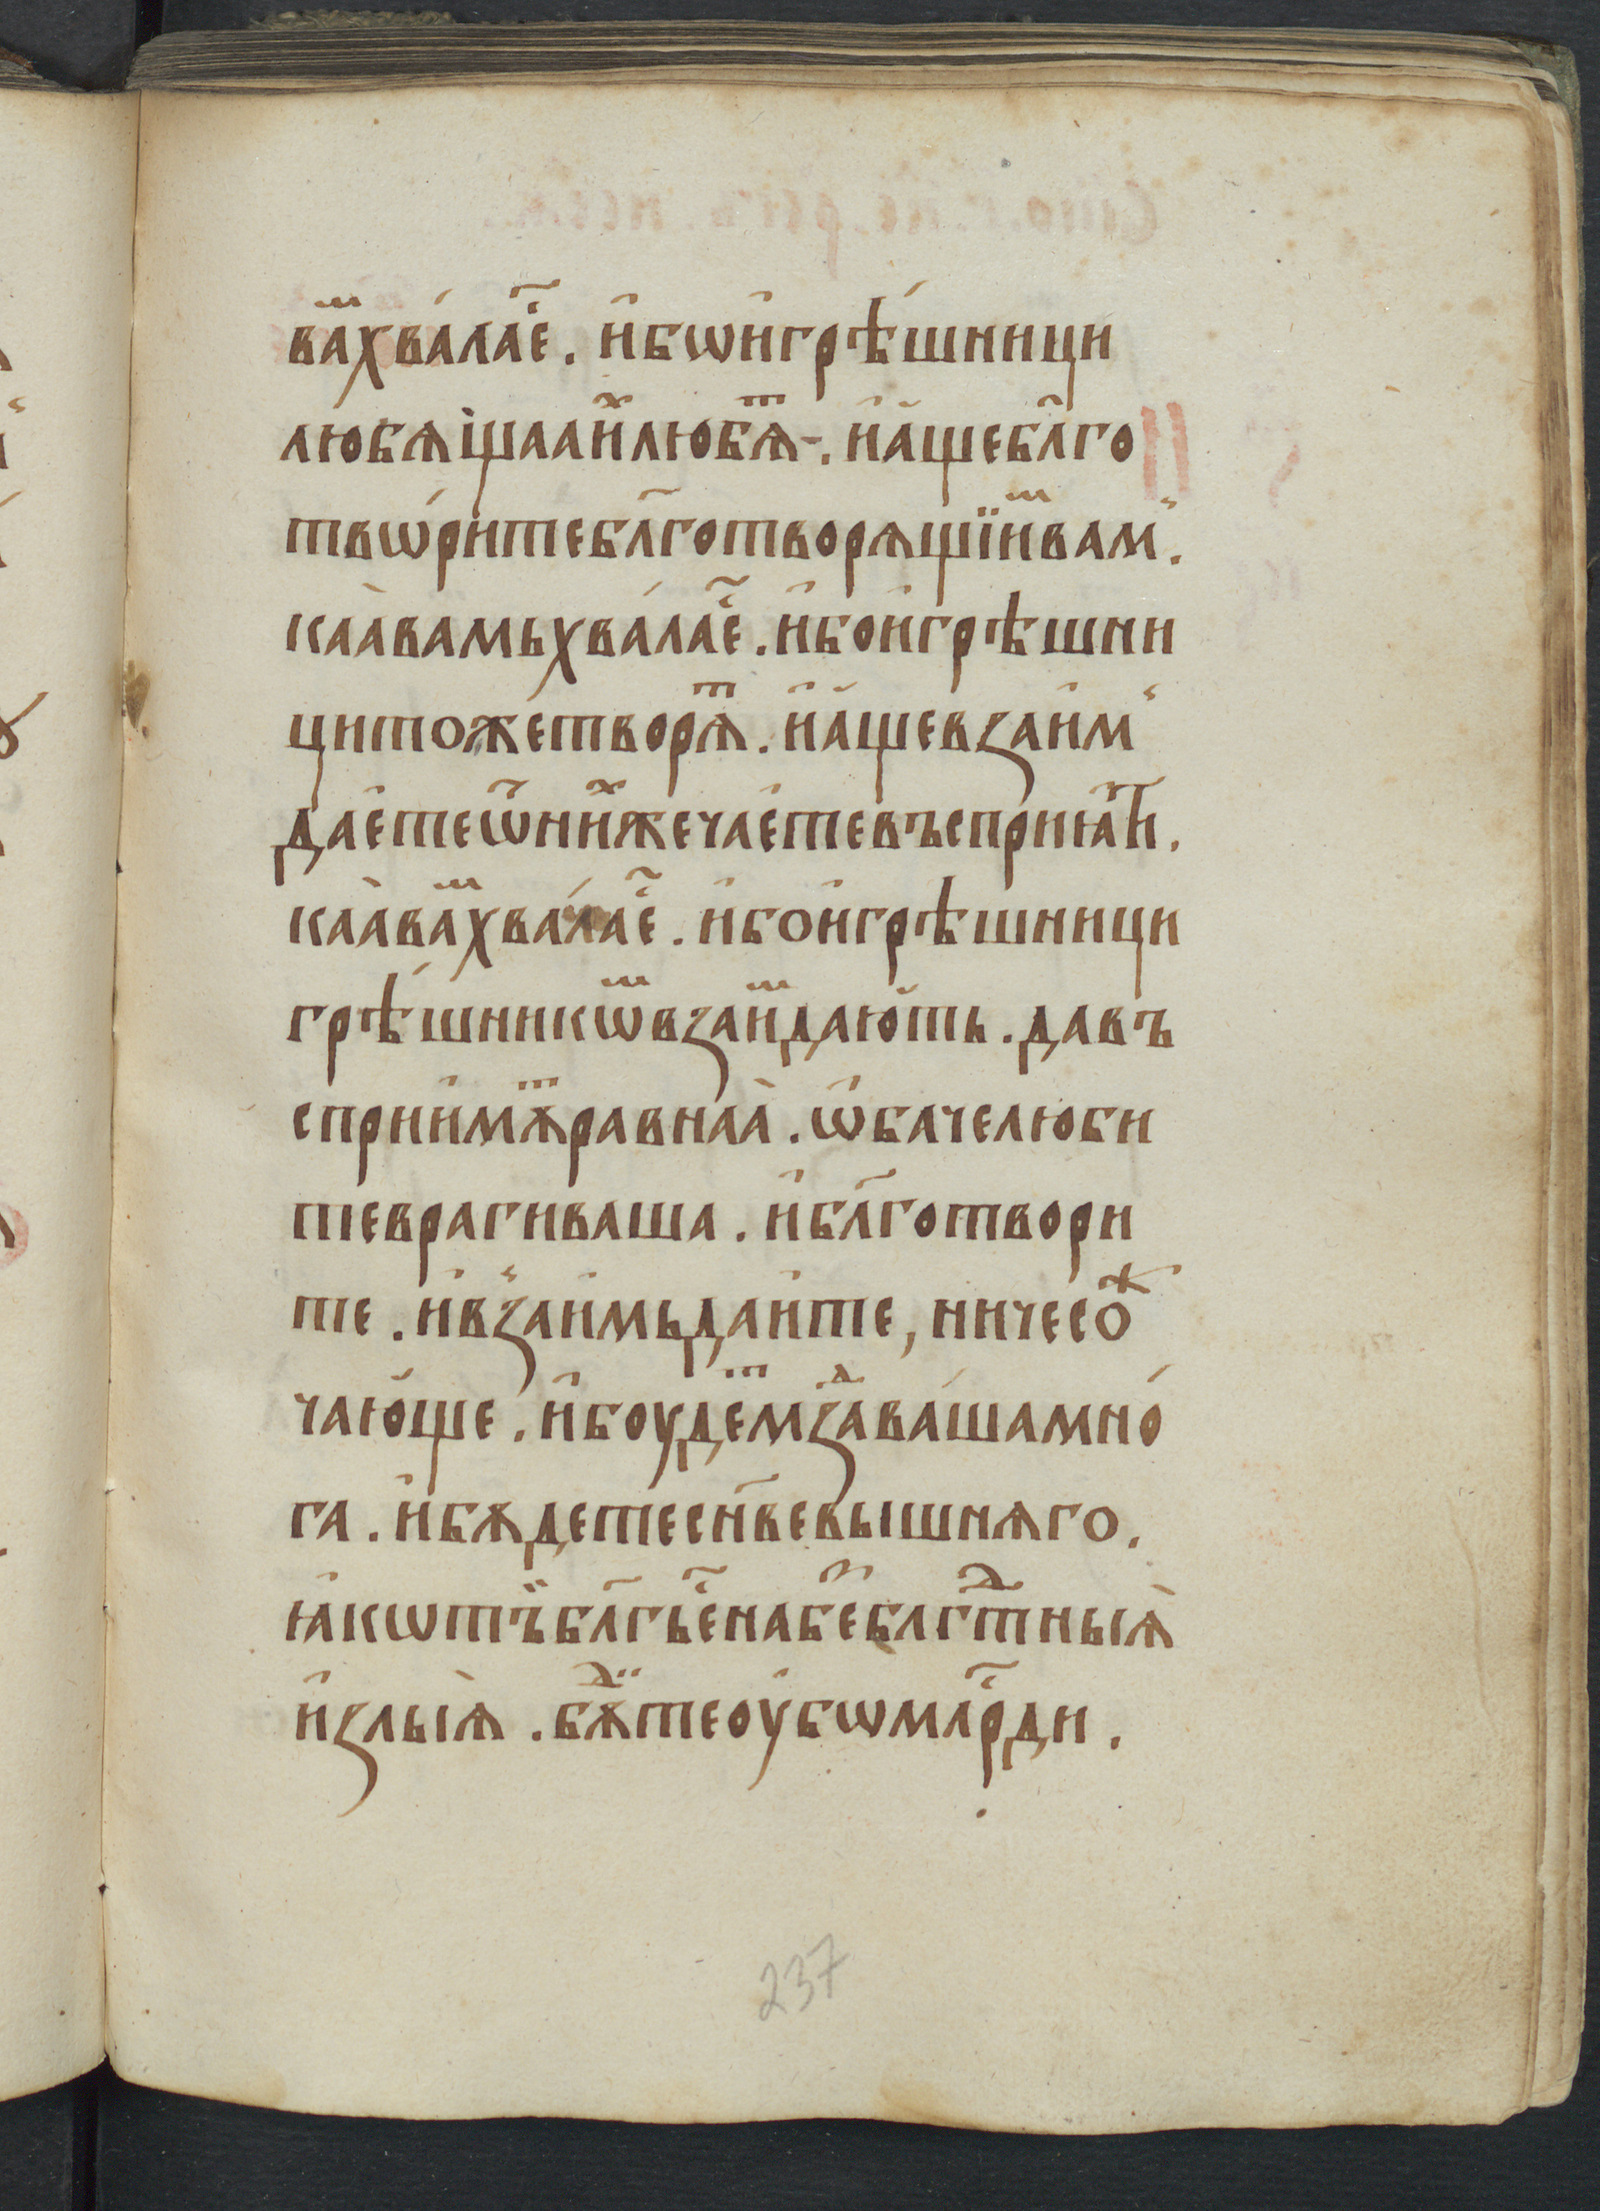 ва́ⷨхва́лае҇. и҆бѡи҆грѣ́шници
любѧщааи҆ⷯлюбѧⷮ. и҆а҆щебл҃го
твѡ́ритебл҃готворѧщїиⷨвам.
каа̀вамьхва́лае҇. и҆бои҆грѣшни
цитожетворѧⷮ. и҆а҆щевзаим
дае҆теѿниⷯжечае҆тевъсприꙗ҆ти.
каа̀ваⷨхва́лае҇. и҆бои҆грѣшници
грѣ́шникѡⷨвзаиⷨдаю҆ть. давъ
сприи҆мѫⷮравнаа̀. ѡ҆бачелюби
теврагиваша. и҆бл҃готвори
те. и҆взаи҆мьдаи҆те, ничесоⷤ
чаю҆ще. и҆боудеⷮмзⷣава́шамно́
га. и҆бѫдетесн҃вевышнѧго.
ꙗ҆кѡтъ̈бл҃гье҇набе҆блгⷣтныѧ̀
и҆злыѧ̀. бѫⷣтеоу҆бѡмлр҇ди.
237